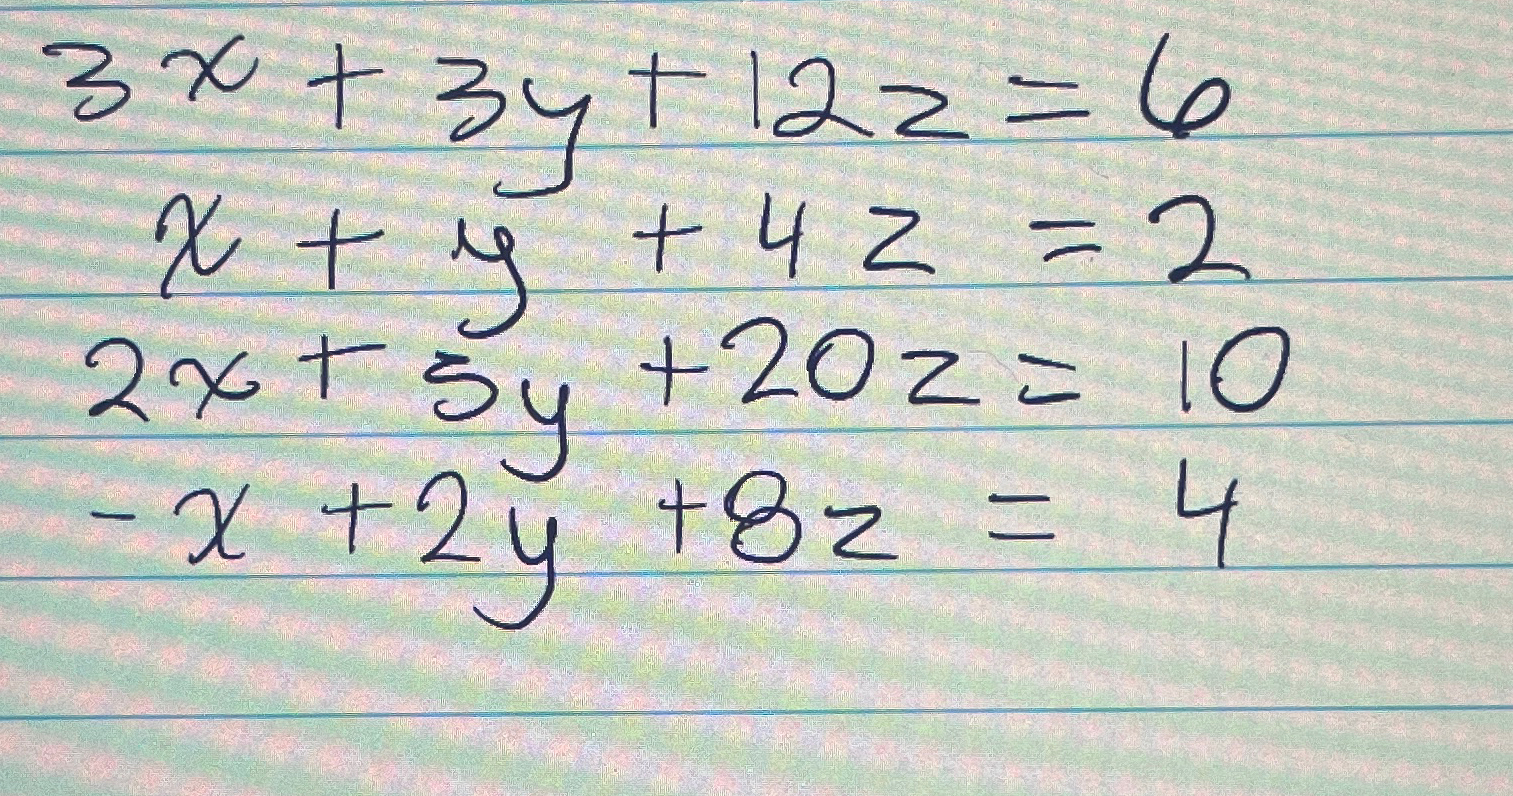 3x + 3y + 12z = 6
x + y + 4z = 2
2x + 5y + 20z = 10
-x + 2y + 8z = 4